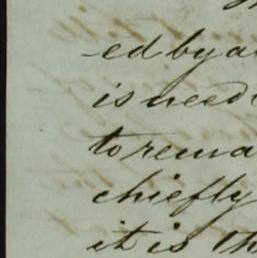 -ed by a
is need
to rema
chiefly
it is th